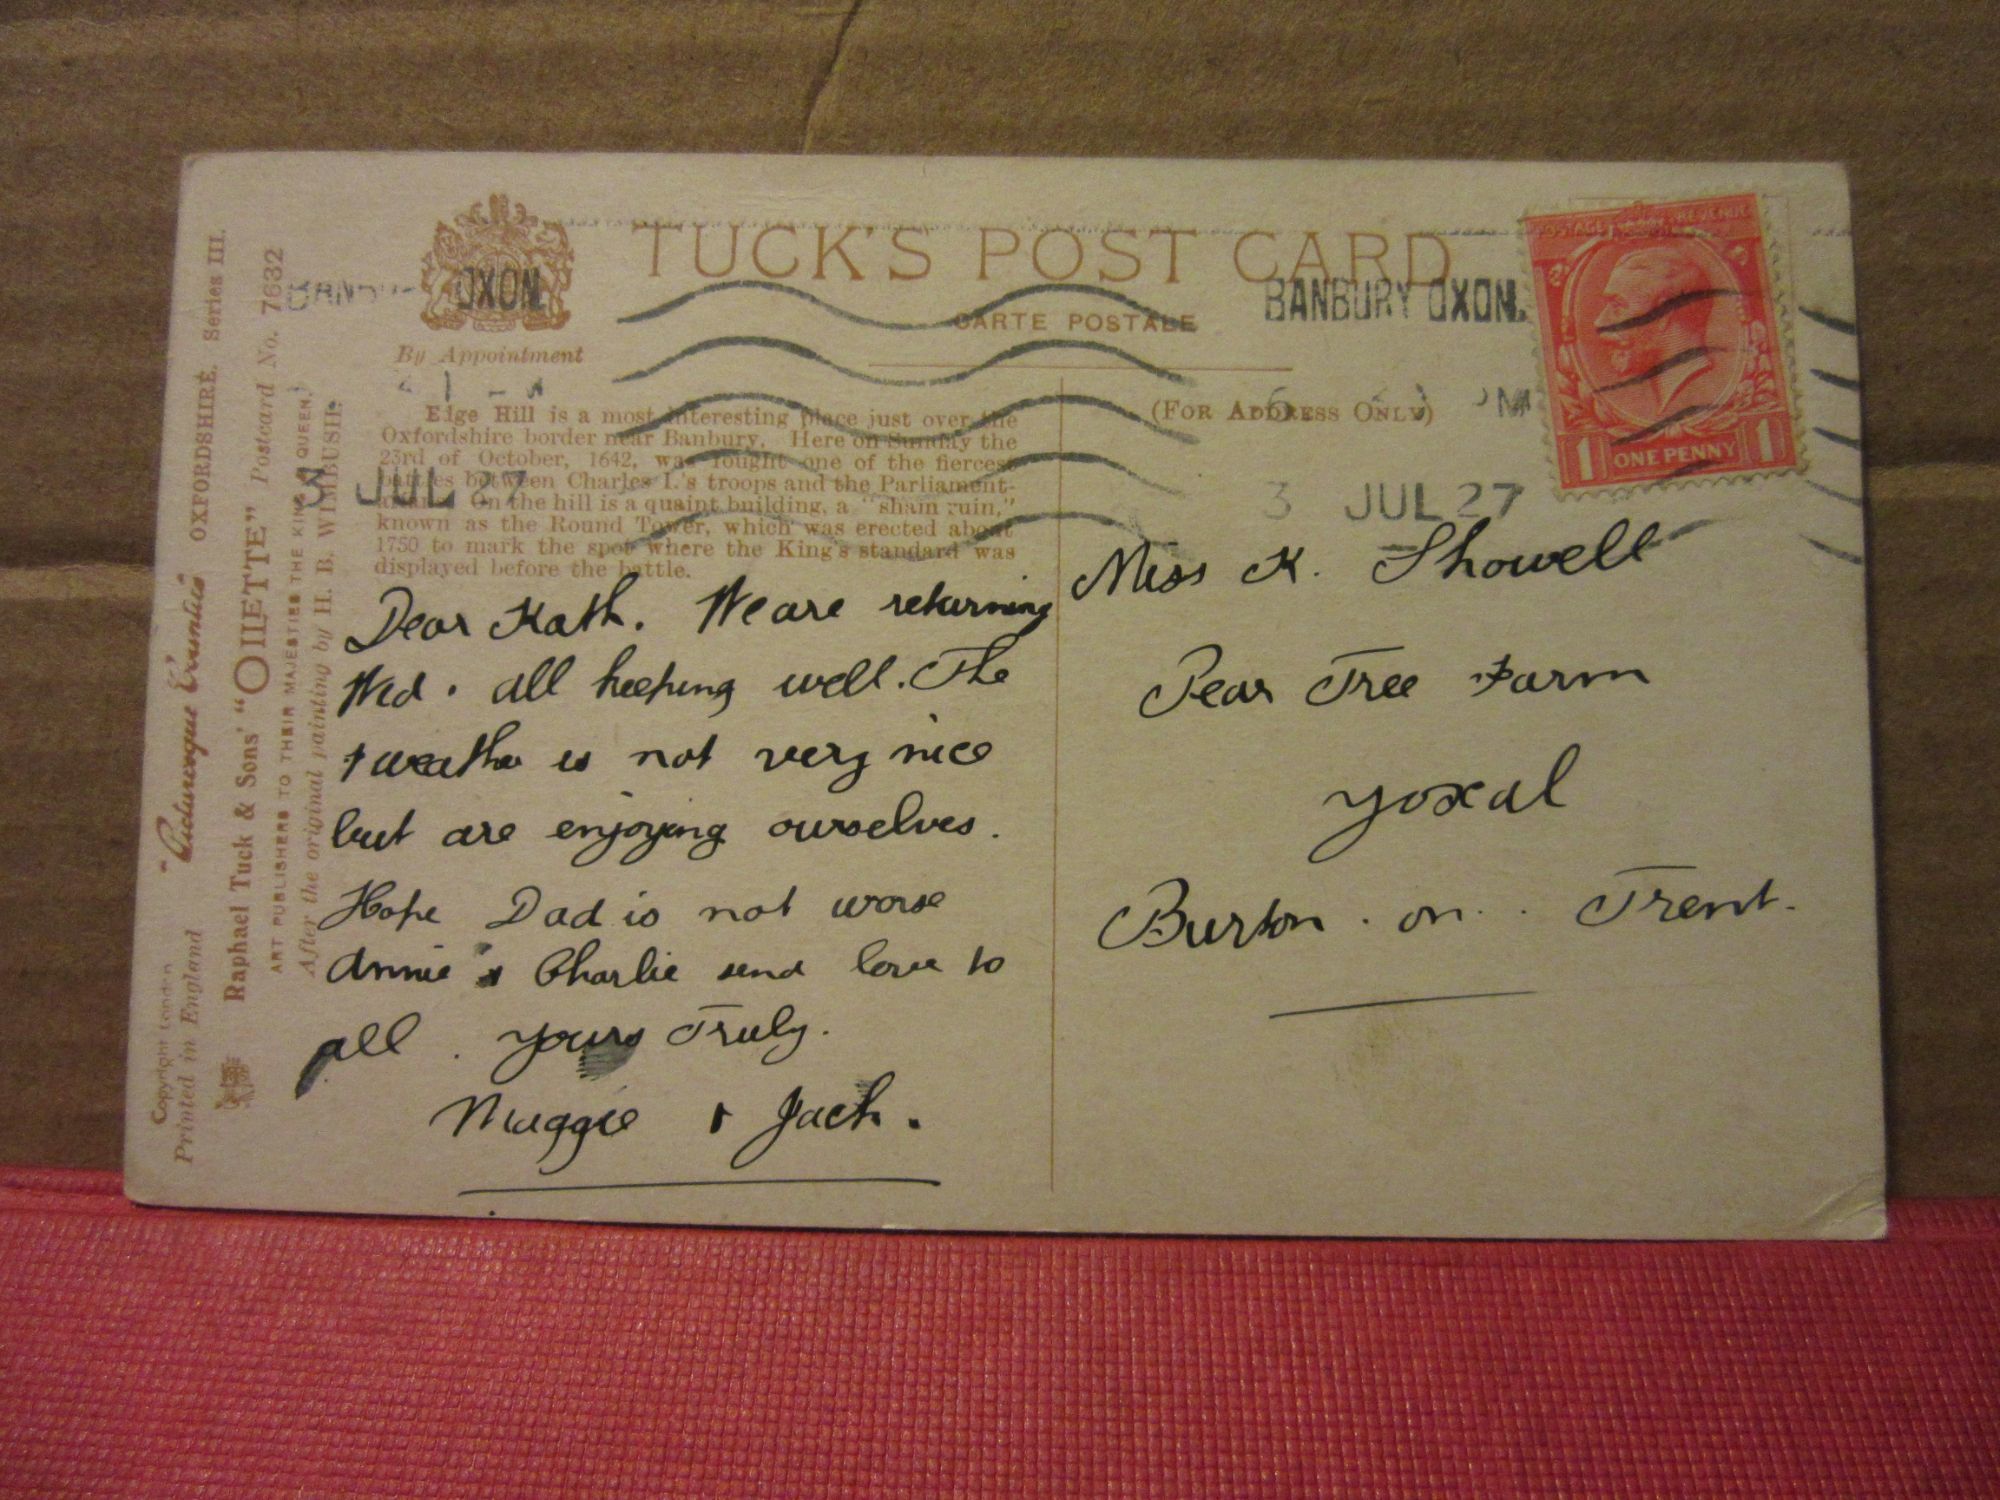 TUCK'S POST CARD
CARTE POSTALE
By Appointment
(FOR ADDRESS ONLY)
BANBURY OXON.
PM
3 JUL 27
OXON.
3 JUL 27
POSTAGE REVENUE
1 ONE PENNY 1
Edge Hill is a most interesting place just over the
Oxfordshire border near Banbury. Here on Sunday the
23rd of October, 1642, was fought one of the fiercest
battles between Charles I.'s troops and the Parliament-
On the hill is a quaint building, a "sham ruin,"
known as the Round Tower, which was erected about
1750 to mark the spot where the King's standard was
displayed before the battle.
Dear Kath. We are returning
Wed. all keeping well. The
weather is not very nice
but are enjoying ourselves.
Hope Dad is not worse
Annie & Charlie send love to
all. Yours Truly.
Maggie & Jack.
Miss K. Showell
Pear Tree Farm
Yoxal
Burton. on. Trent.
"Picturesque Counties" OXFORDSHIRE. Series III.
Raphael Tuck & Sons' "OILETTE" Postcard No. 7632
ART PUBLISHERS TO THEIR MAJESTIES THE KING & QUEEN.
After the original painting by H. B. WIMBUSH.
Copyright London
Printed in England